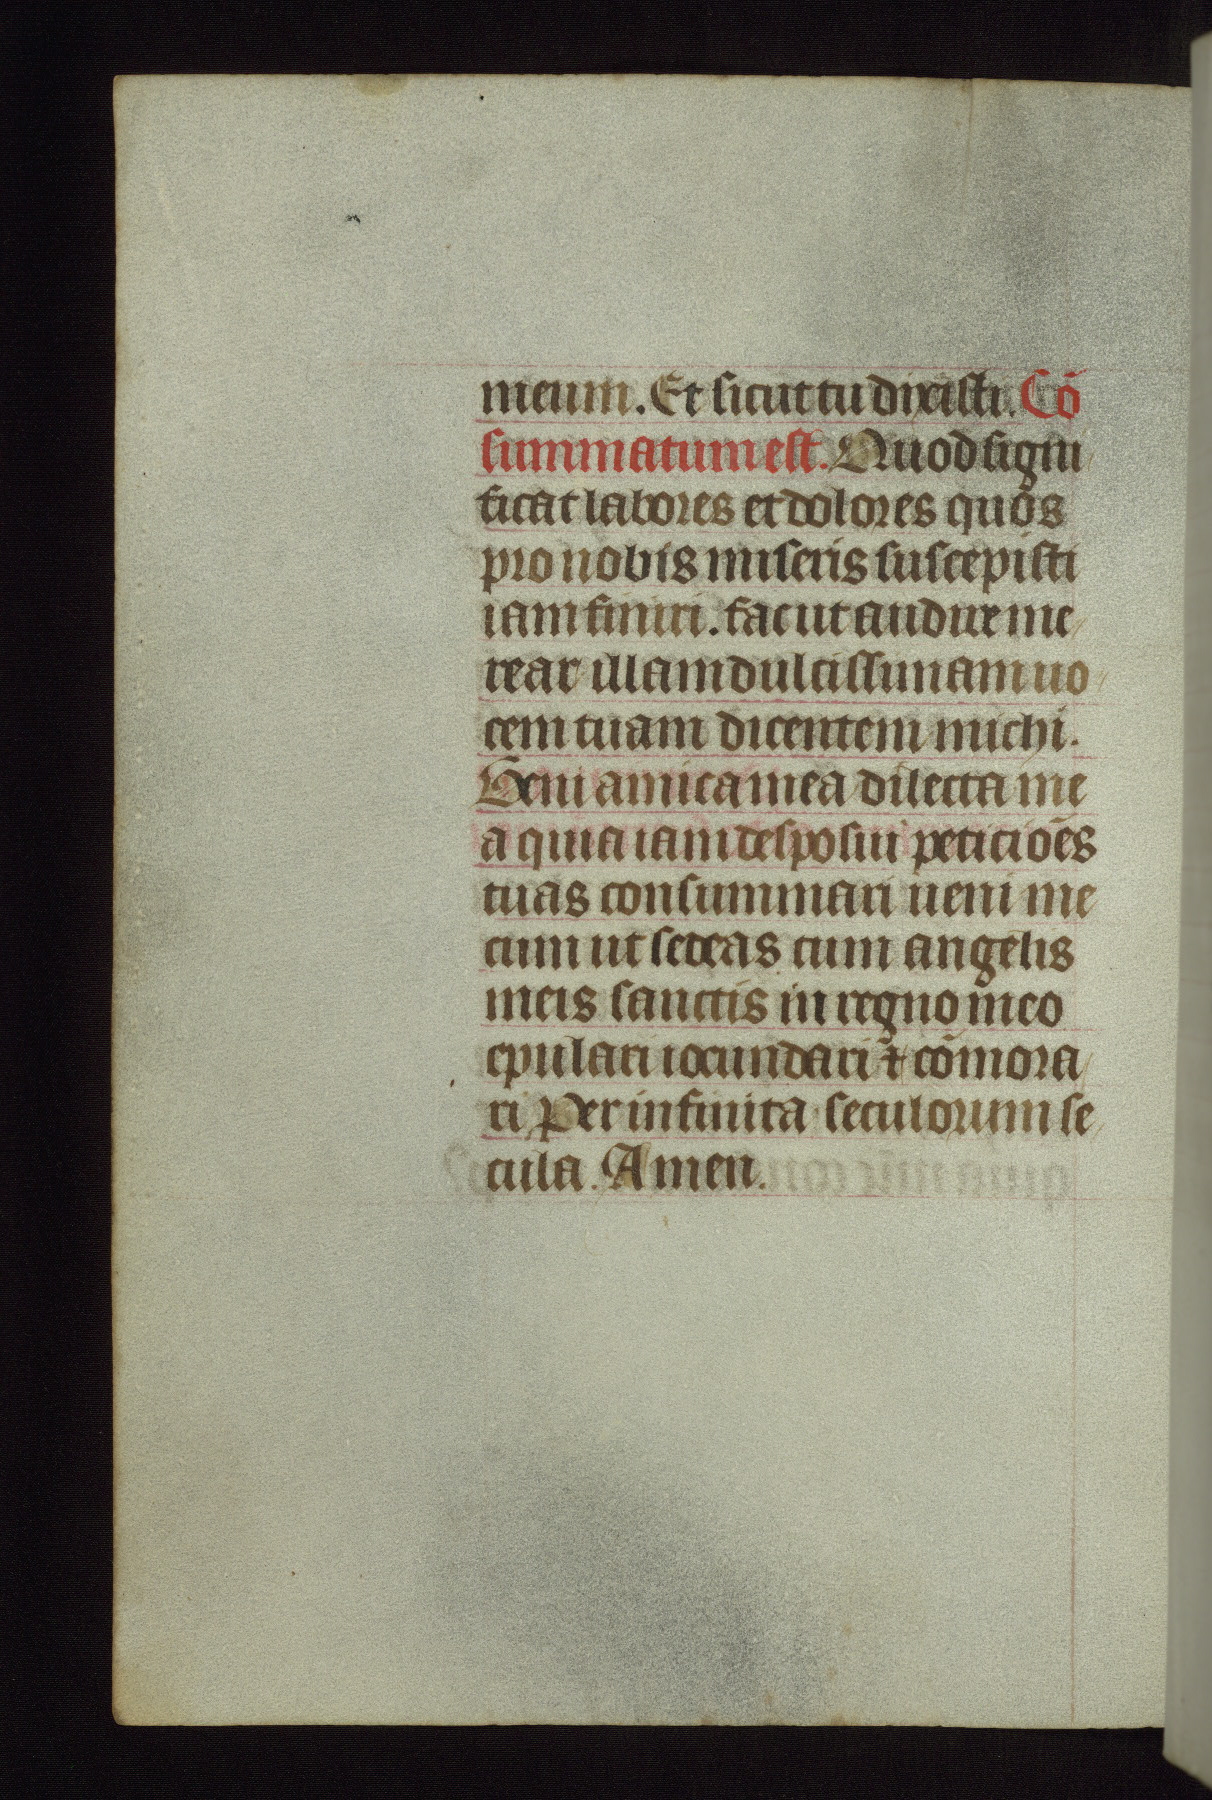 meum. Et sicut tu dixisti. Cō
summatum est. Quod signi
ficat labores et dolores quos
pro nobis miseris suscepisti
iam finiri. fac ut audire me
rear illam dulcissimam uo
cem tuam dicentem michi.
Veni amica mea dilecta me
a quia iam desposui peticiōes
tuas consummari ueni me
cum ut sedeas cum angelis
meis sanctis in regno meo
epulari iocundari ⁊ cōmora
ri Per infinita seculorum se
cula. Amen.